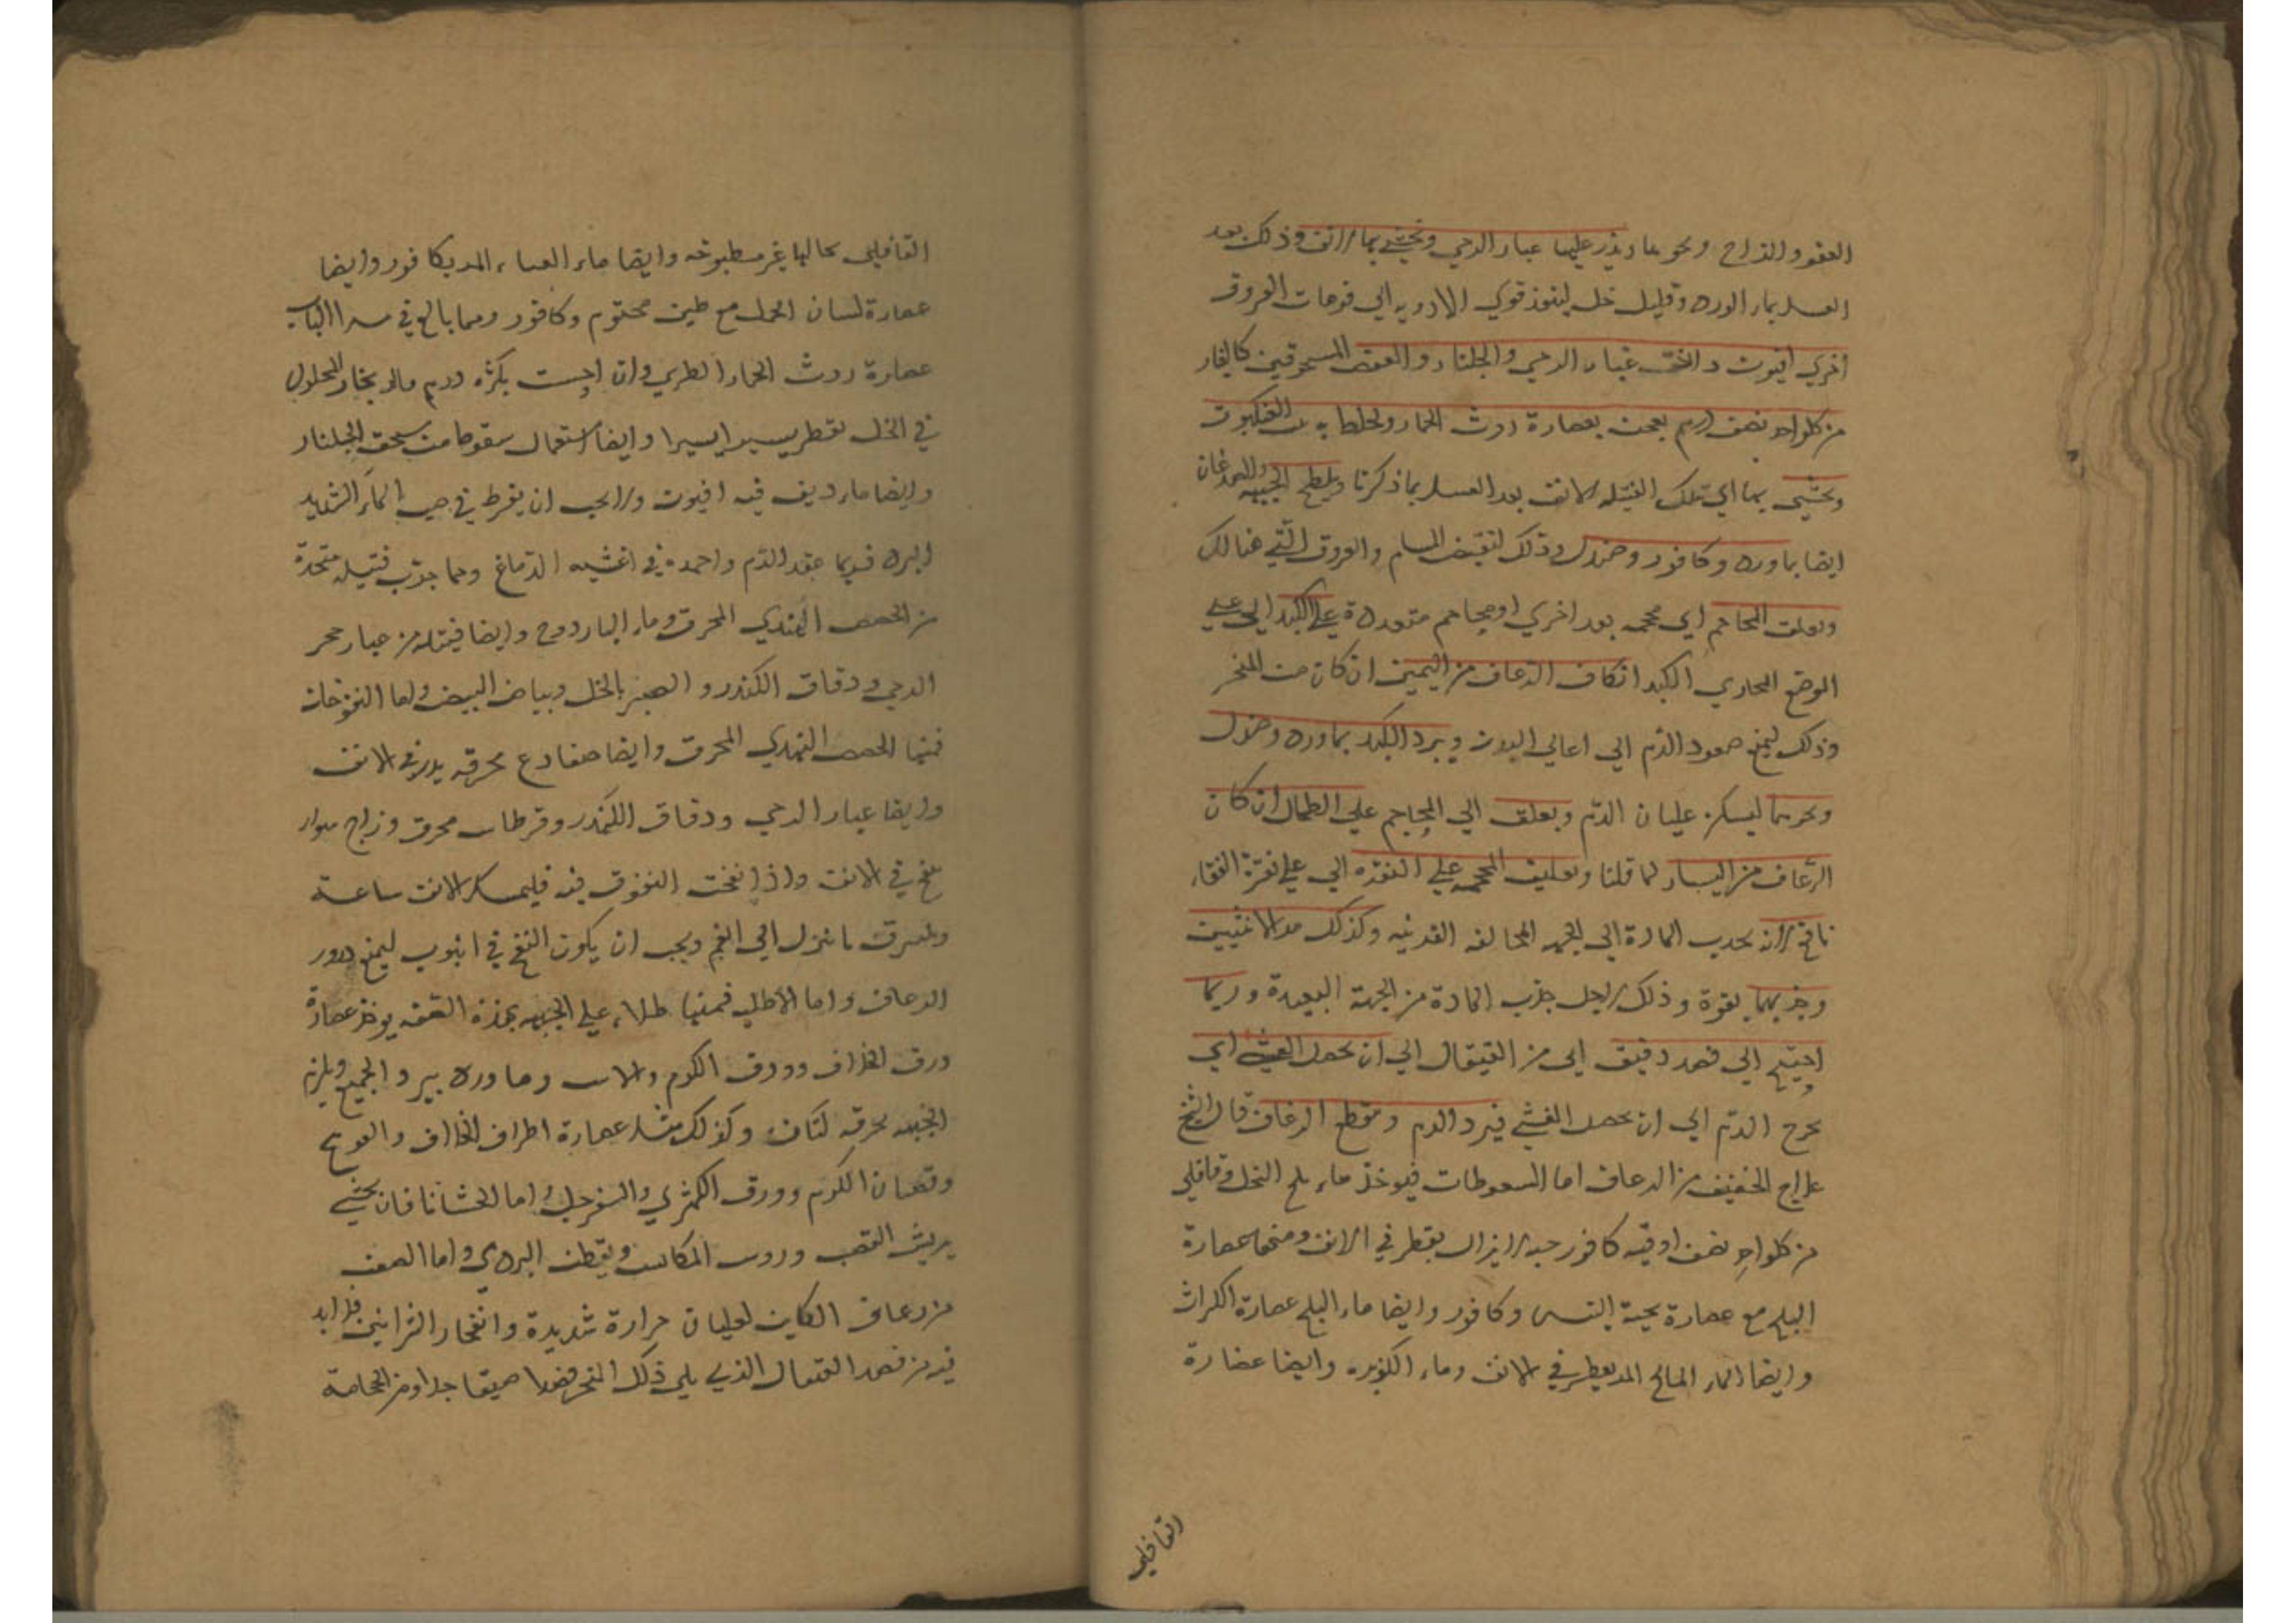 العفص والزاج ونحوهما ويذر عليها غبار الرحي ويحشي بها الانف وذلك بعد
الغسل بماء الورد وقليل خل لينفوذ قوي الادويه الي فوهات العروق
اخري افيون دانق غبار الرحي والجلنار والعفص المسحوقين كالغبار
من كلواحد نصف درهم يعجن بعصارة روث الحمار ويخلط به بيت العنكبوت
ويحشي بها اي بتلك الفتيله الانف بعد الغسل بما ذكرنا ويلطخ الجبهه والصدغان
ايضا بماورد وكافور وصندل وذلك لتقبض المسام والعروق التي هنالك
وتعلق المحاجم اي محجمه بعد اخري او محاجم متعددة علي الكبد اي علي
الموضع المحاذي الكبد انكان الرعاف من اليمين ان كان من المنخر
وذلك ليمنع صعود الدم الي اعالي البدن ويبرد الكبد بماورد وصندل
ونحوهما ليسكن غليان الدم ويعلق اي المحاجم علي الطحال ان كان
الرعاف من اليسار لما قلنا وتعليق المحجمه علي النقره اي علي نقرة القفا
نافع لانه يجذب المادة الي الجهه المخالفه القريبه وكذلك شد الانثيين
وجذبهما بقوة وذلك لاجل جذب المادة من الجهة البعيدة وربما
احتيج الي فصد دقيق اي من القيفال الي ان يحصل الغشي اي
يخرج الدم الي ان يحصل الغشي فيبرد الدم وينقطع الرعاف قال الشيخ
علاج الخفيف من الرعاف اما السعوطات فيوخذ ماء بلح النخل وقاقلي
من كلواحد نصف اوقيه كافور حبه لايزال يقطر في الانف ومنها عصارة
البلح مع عصارة لحية التيس وكافور وايضا ماء البلح عصارة الكراث
وايضا الماء المالح المر يقطر في الانف وماء الكزبره وايضا عصارة
القاقلي
القاقلي بحالها غير مطبوخه وايضا ماء القثاء المر بكافور وايضا
عصارة لسان الحمل مع طين مختوم وكافور ومما بالغ في هذا الباب
عصارة روث الحمار الطري وان احست بكثره دم مالر بخار المحلول
في الخل يقطر يسيرا يسيرا وايضا استعمال سعوطا من سحق الجلنار
وايضا ماء ديف فيه افيون ولايجب ان يفرط في صب الماء الشديد
البرد فربما عقد الدم واجمده في اغشيه الدماغ ومما جرب فتيله متخذة
من الحصص الهندي المحرق وماء الباردوج وايضا فتيله من غبار حجر
الرحي ودقاق الكندر والصبر بالخل وبياض البيض واما النفوخات
فمنها الحصص الهندي المحرق وايضا ضفادع محرقه يذر في الانف
وايضا غبار الرحي ودقاق الكندر وقرطاس محرق وزاج سواء
ينفخ في الانف واذا نفخت النفوخ فيه فليمسك الانف ساعة
وليبرق ما نزل الي الفم ويجب ان يكون النفخ في انبوب ليمنع درور
الرعاف واما الاطليه فمنها طلاء علي الجبهه بهذه الصفه يوخذ عصارة
ورق الخلاف وورق الكرم والاس وماورد يبرد الجميع ويلزم
الجبهه بخرقه كتان وكذلك مثل عصارة اطراف الخلاف والعوسج
وقضبان الكرم وورق الكمثري والسفرجل واما الحشانا فان يحشي
بريش القصب وروس المكانس وبقطن البردي واما الصعب
من رعاف الكاين لغليان حرارة شديدة وانفجار الشرايين فلابد
فيه من فصد القيفال الذي يلي ذلك المنخر فصدا ضيقا جدا ومن الحجامة